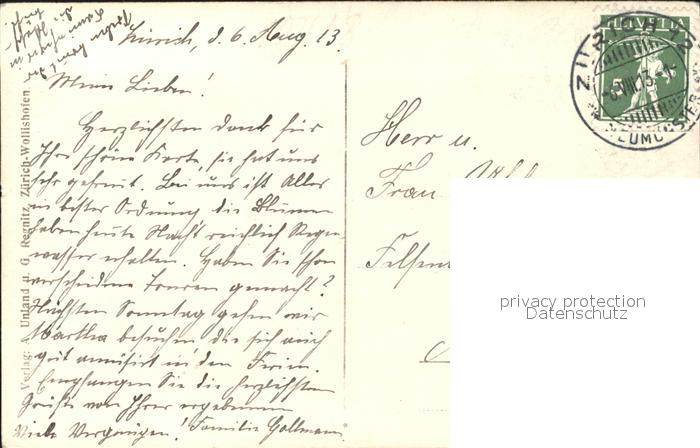 Zürich, d. 6. Aug. 13.
Meine Lieben!
Herzlichsten Dank für
Ihre schöne Karte, sie hat uns
sehr gefreut. Bei uns ist Alles
in bester Ordnung, die Blumen
haben heute Nacht reichlich Regen-
wasser erhalten. Haben Sie schon
verschiedene Touren gemacht?
Nächsten Sonntag gehen wir
Martha besuchen die sich auch
gut amüsirt in den Ferien.
Empfangen Sie die herzlichsten
Grüße von Ihrer ergebenen
Viele Vergnügen! Familie Gollmann
Verlag: Unland u. G. Regnitz, Zürich-Wollishofen.
Herr u.
Frau
HELVETIA
5
ZÜRICH 12
-6.VIII.13.
privacy protection
Datenschutz